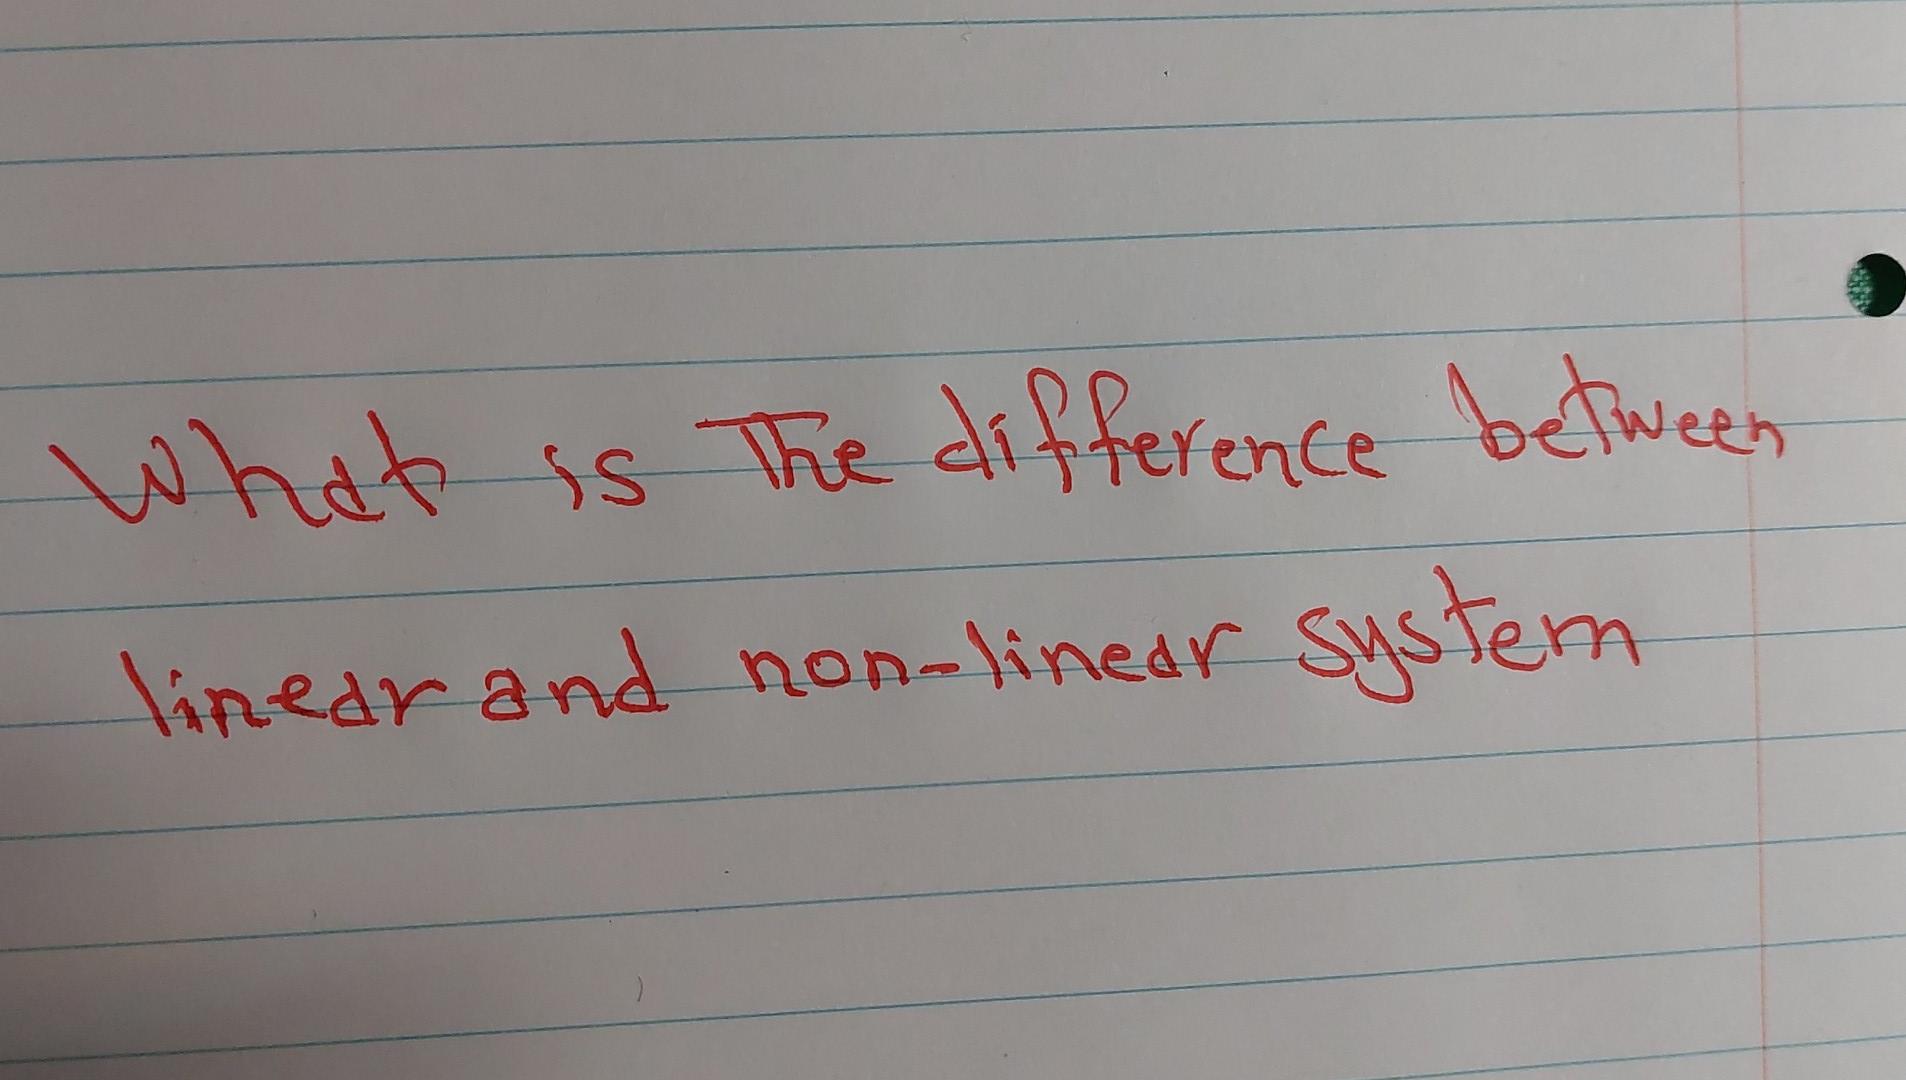 What is The difference between
linear and non-linear system